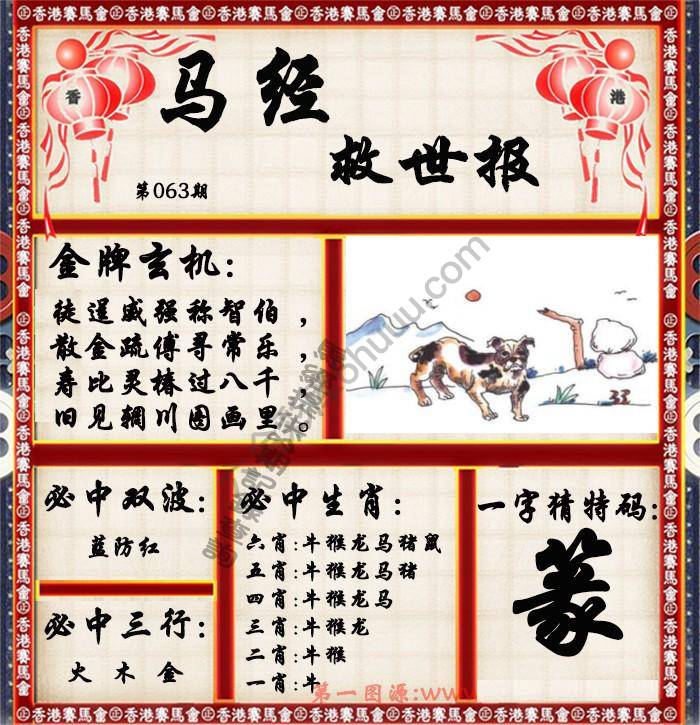 香港賽馬會
香 港
马经
救世报
第063期
金牌玄机:
徒逞威强称智伯，
散金疏傅寻常乐，
寿比灵椿过八千，
旧见辋川图画里。
必中双波:
蓝防红
必中三行:
火 木 金
必中生肖:
六肖:牛猴龙马猪鼠
五肖:牛猴龙马猪
四肖:牛猴龙马
三肖:牛猴龙
二肖:牛猴
一肖:牛
一字猜特码:
篆
第一图源:www